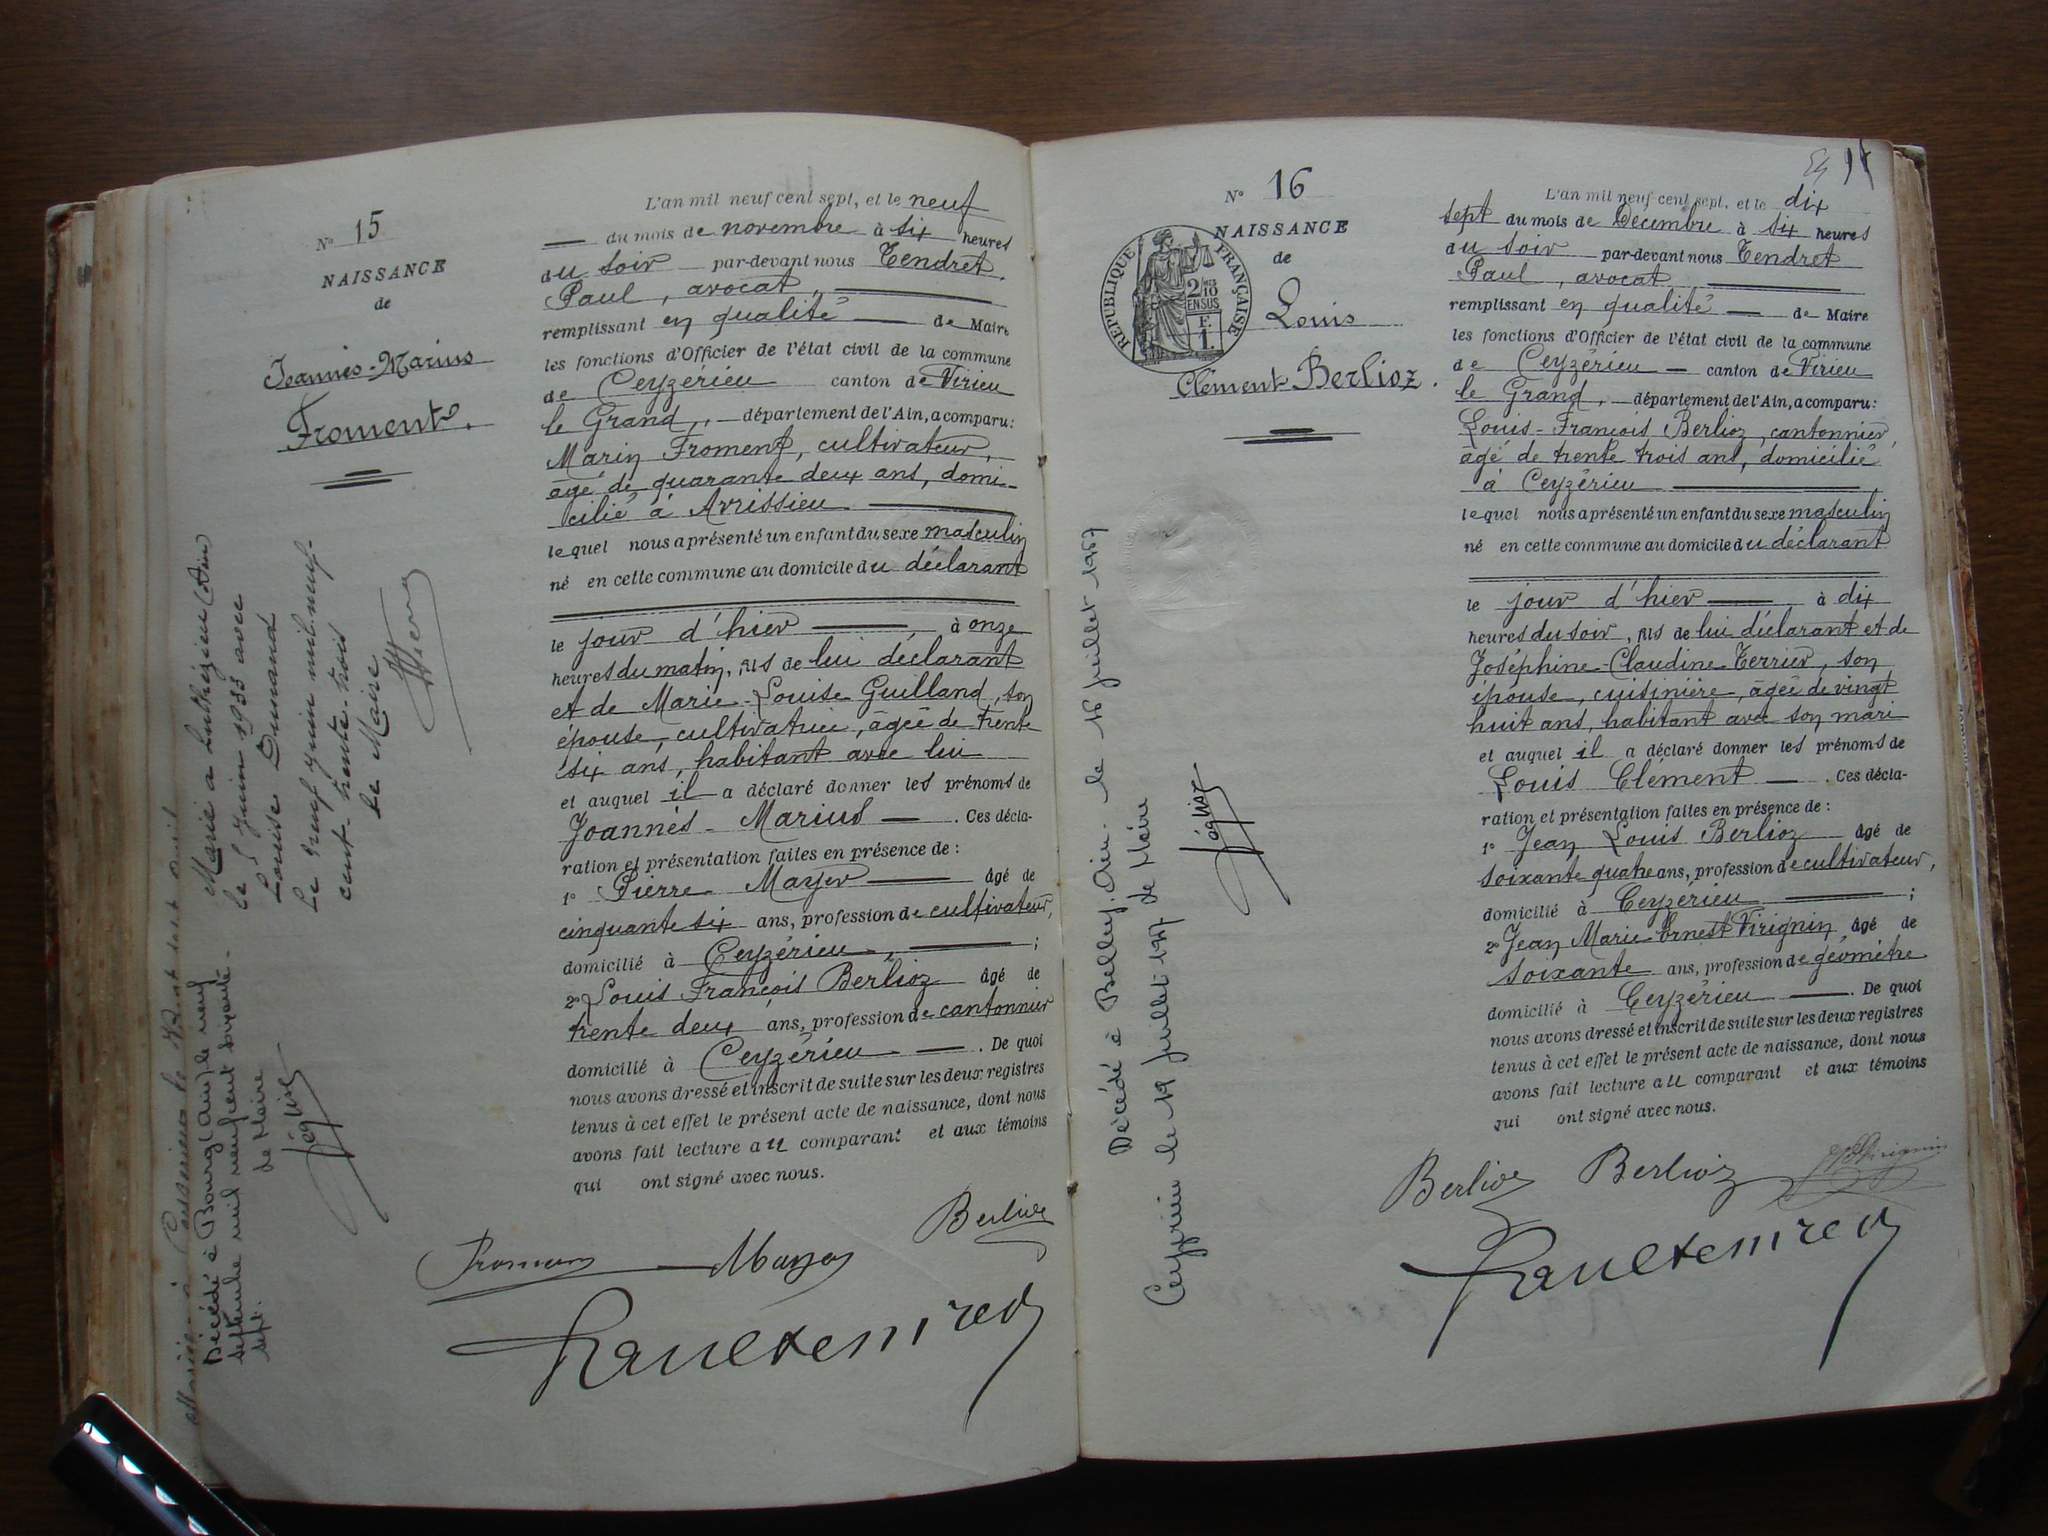 N° 15
NAISSANCE
de
Joannès-Marius
Froment.
L'an mil neuf cent sept, et le neuf
du mois de novembre à six heures
du soir par-devant nous Tendret
Paul, avocat,
remplissant en qualité de Maire
les fonctions d'Officier de l'état civil de la commune
de Ceyzérieu canton de Virieu
le Grand, département de l'Ain, a comparu:
Marin Froment, cultivateur,
âgé de quarante deux ans, domi-
cilié à Avrissieu
lequel nous a présenté un enfant du sexe masculin
né en cette commune au domicile du déclarant
le jour d'hier à onze
heures du matin, fils de lui déclarant
et de Marie-Louise Guilland, son
épouse, cultivatrice, âgée de trente
six ans, habitant avec lui
et auquel il a déclaré donner les prénoms de
Joannès-Marius. Ces décla-
ration et présentation faites en présence de :
1° Pierre Mayer âgé de
cinquante six ans, profession de cultivateur,
domicilié à Ceyzérieu, ;
2° Louis François Berlioz âgé de
trente deux ans, profession de cantonnier
domicilié à Ceyzérieu. De quoi
nous avons dressé et inscrit de suite sur les deux registres
tenus à cet effet le présent acte de naissance, dont nous
avons fait lecture au comparant et aux témoins
qui ont signé avec nous.
Berlioz
Froment Mayer
Paul Tendret
Marié à (Ain)
le 5 Juin 1933 avec
Louise Dumand
Le neuf juin mil-neuf-
cent-trente-trois
Le Maire
Décédé à Bourg (Ain) le neuf
septembre mil neuf cent soixante-
sept.
Le Maire
Féglise
N° 16
NAISSANCE
de
Louis
Clément Berlioz.
RÉPUBLIQUE FRANÇAISE
2/10
EN SUS
F.
1.
L'an mil neuf cent sept, et le dix
sept du mois de Décembre à six heures
du soir par-devant nous Tendret
Paul, avocat
remplissant en qualité de Maire
les fonctions d'Officier de l'état civil de la commune
de Ceyzérieu canton de Virieu
le Grand, département de l'Ain, a comparu:
Louis-François Berlioz, cantonnier,
âgé de trente trois ans, domicilié
à Ceyzérieu
lequel nous a présenté un enfant du sexe masculin
né en cette commune au domicile du déclarant
le jour d'hier à dix
heures du soir, fils de lui déclarant et de
Joséphine-Claudine Terrier, son
épouse, cuisinière, âgée de vingt
huit ans, habitant avec son mari
et auquel il a déclaré donner les prénoms de
Louis Clément. Ces décla-
ration et présentation faites en présence de :
1° Jean Louis Berlioz âgé de
soixante quatre ans, profession de cultivateur,
domicilié à Ceyzérieu ;
2° Jean Marie Ernest Virignin âgé de
soixante ans, profession de géomètre
domicilié à Ceyzérieu. De quoi
nous avons dressé et inscrit de suite sur les deux registres
tenus à cet effet le présent acte de naissance, dont nous
avons fait lecture au comparant et aux témoins
qui ont signé avec nous.
Berlioz Berlioz Virignin
Paul Tendret
Décédé à Belley. Ain. le 16 Juillet 1967
Ceyzérieu le 19 Juillet 1967 le Maire
Féglise